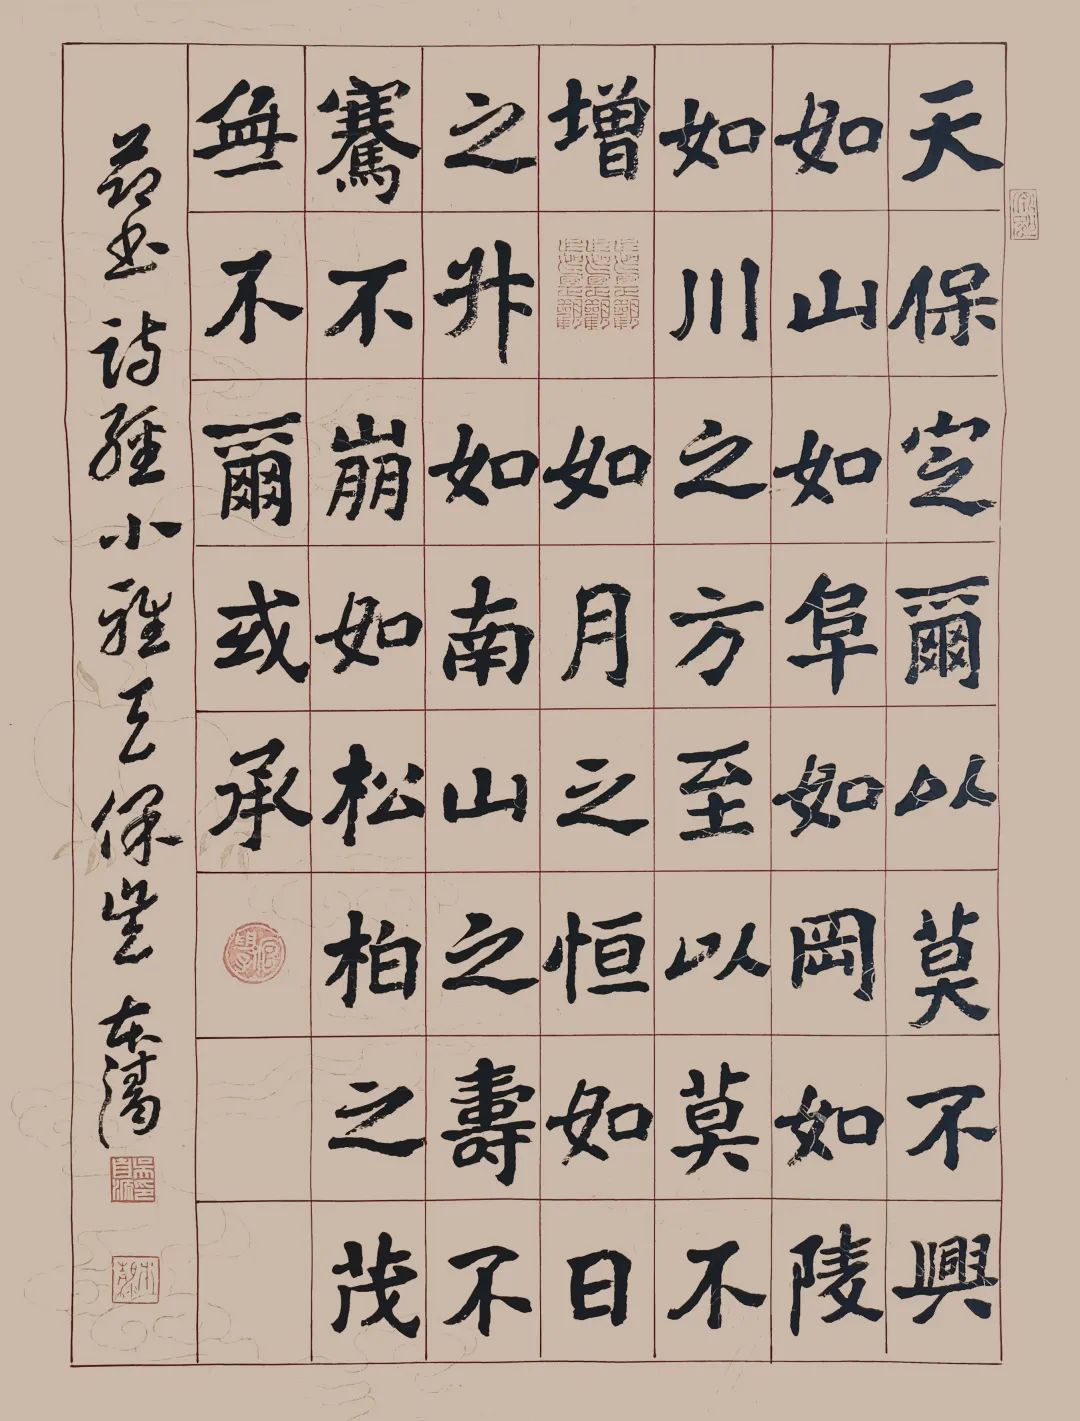 天保定爾以莫不興
如山如阜如岡如陵
如川之方至以莫不
增如月之恒如日
之升如南山之壽不
騫不崩如松柏之茂
無不爾或承
節書詩經小雅天保